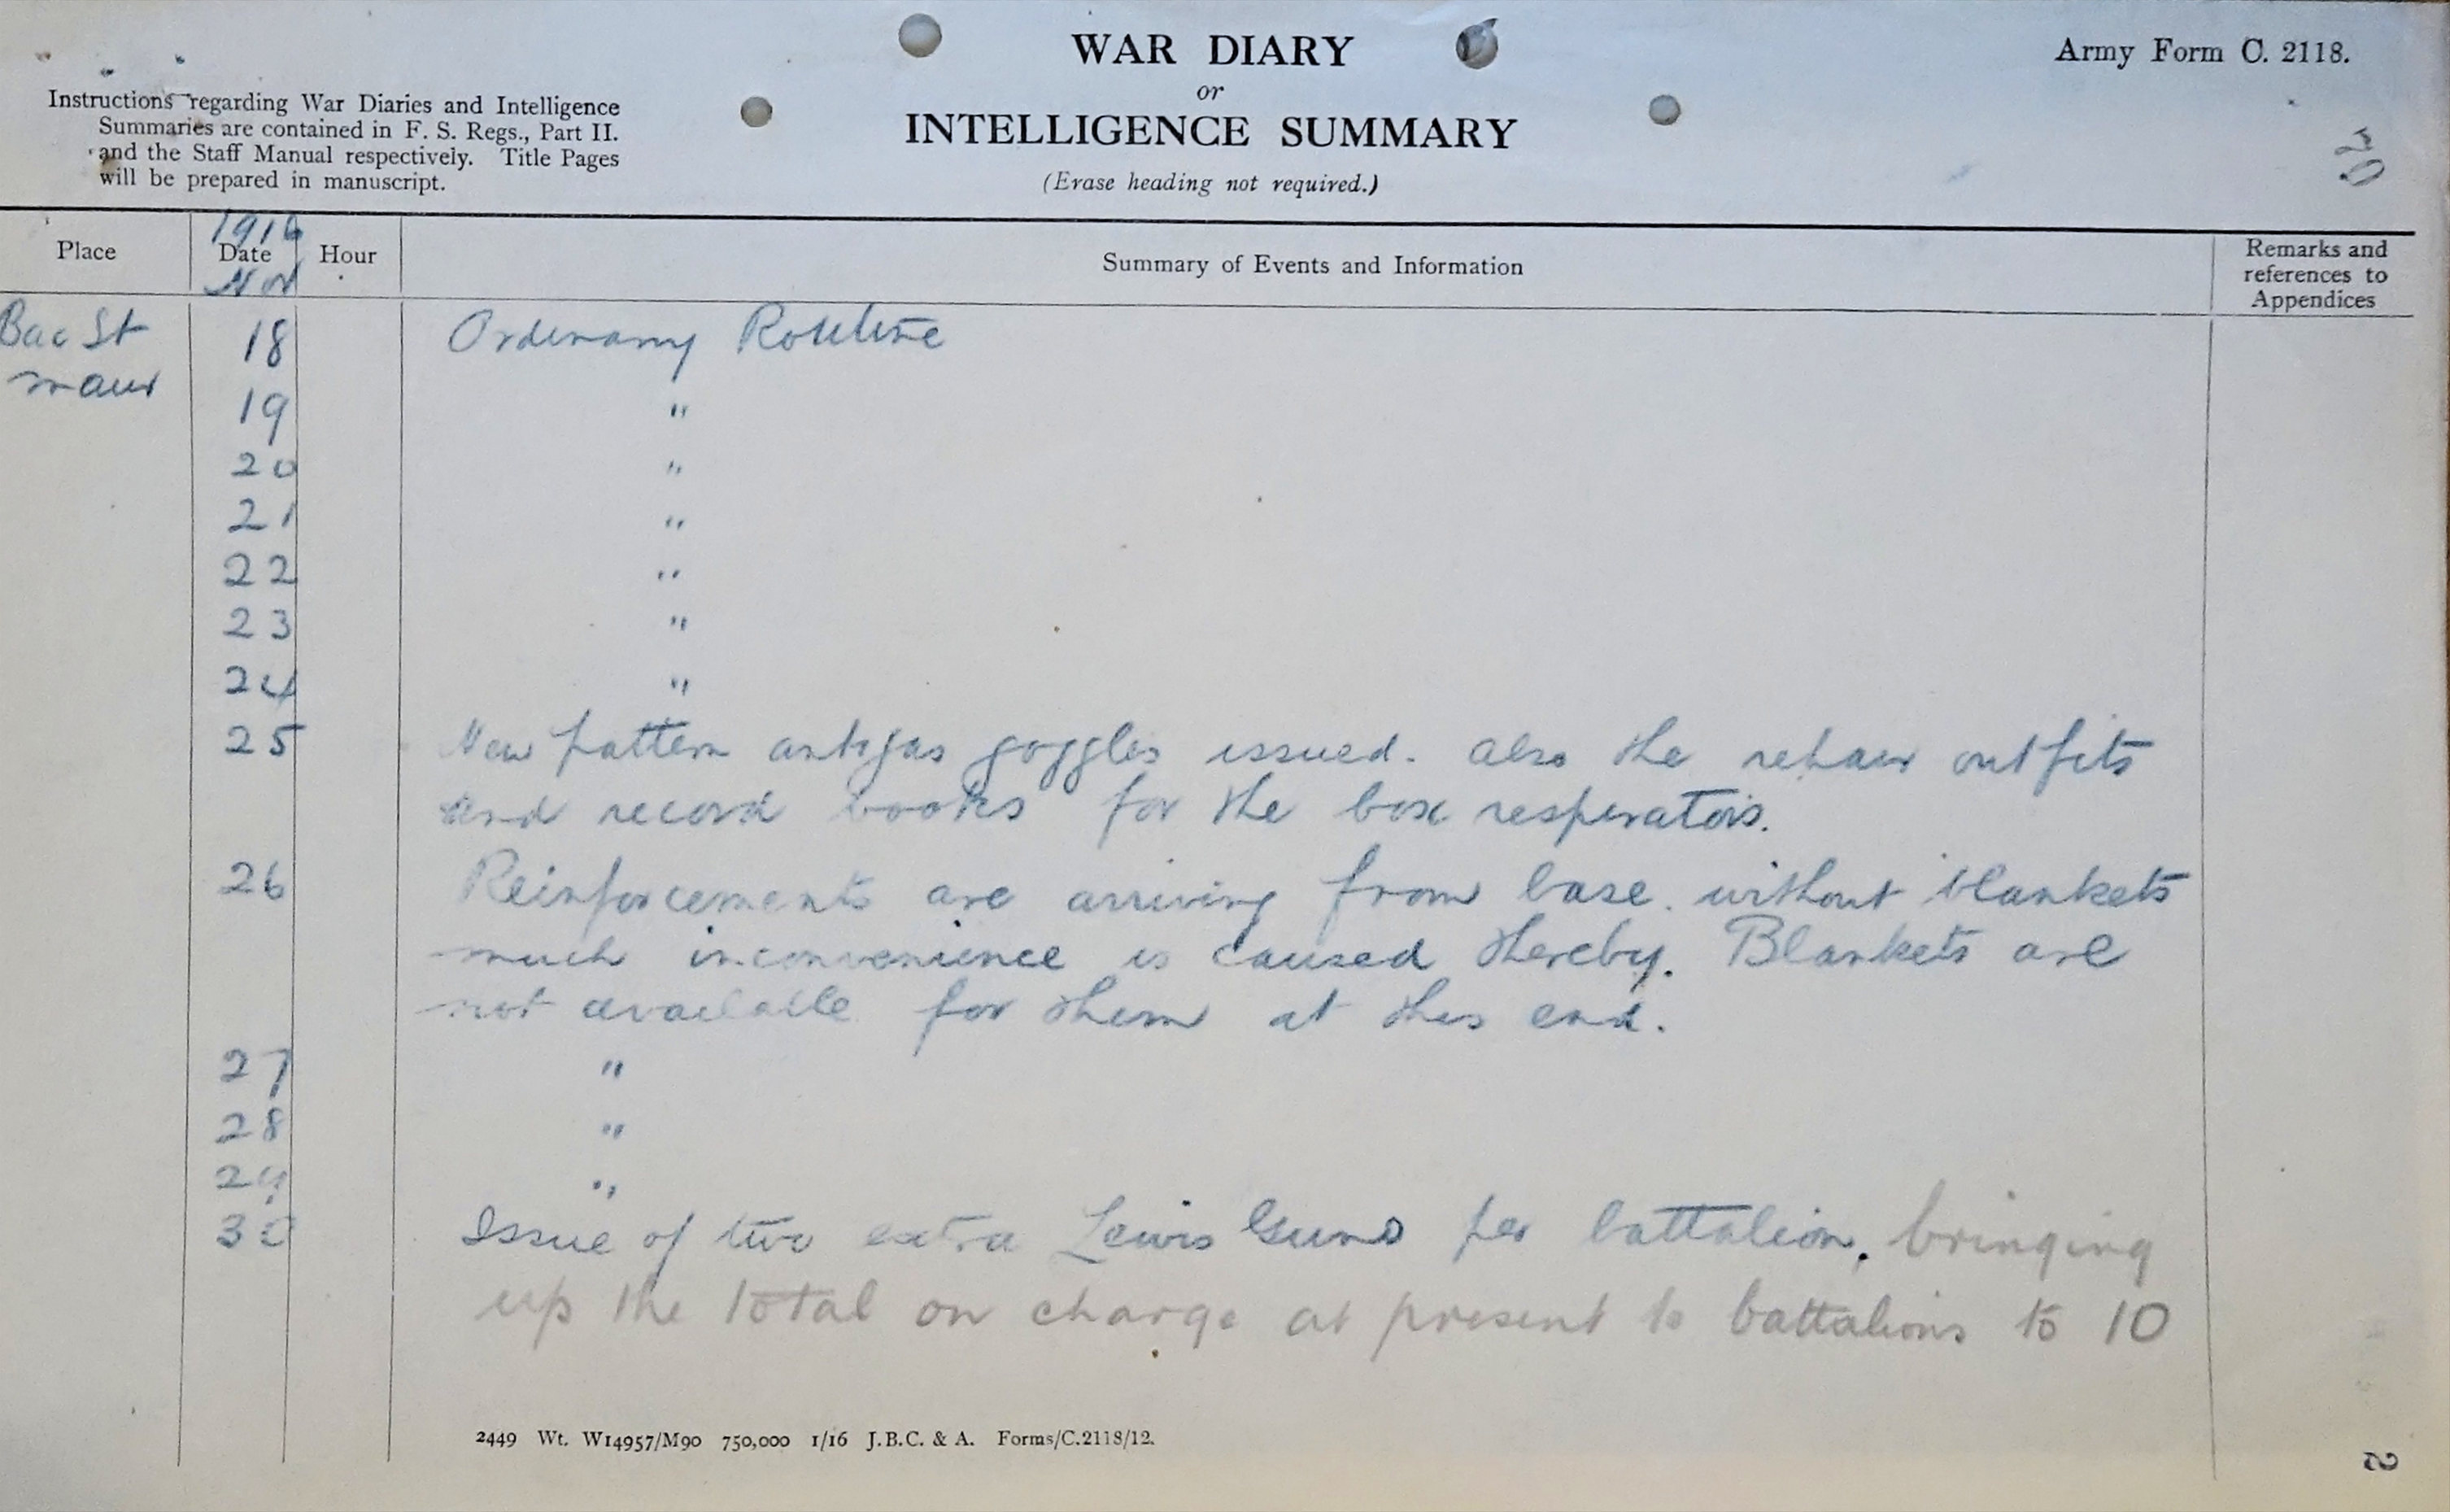 WAR DIARY
or
INTELLIGENCE SUMMARY
(Erase heading not required.)
Army Form C. 2118.
Instructions regarding War Diaries and Intelligence
Summaries are contained in F. S. Regs., Part II.
and the Staff Manual respectively. Title Pages
will be prepared in manuscript.
20
Place 1916 Date Nov Hour Summary of Events and Information Remarks and references to Appendices
Bac St 18 Ordinary Routine
maur
19 "
20 "
21 "
22 "
23 "
24 "
25 New pattern antigas goggles issued. also the repair outfits
and record books for the box respirators.
26 Reinforcements are arriving from base. without blankets
much inconvenience is caused thereby. Blankets are
not available for them at this end.
27 "
28 "
29 "
30 Issue of two extra Lewis Guns per battalion, bringing
up the total on charge at present to battalions to 10
2449 Wt. W14957/M90 750,000 1/16 J.B.C. & A. Forms/C.2118/12.
2